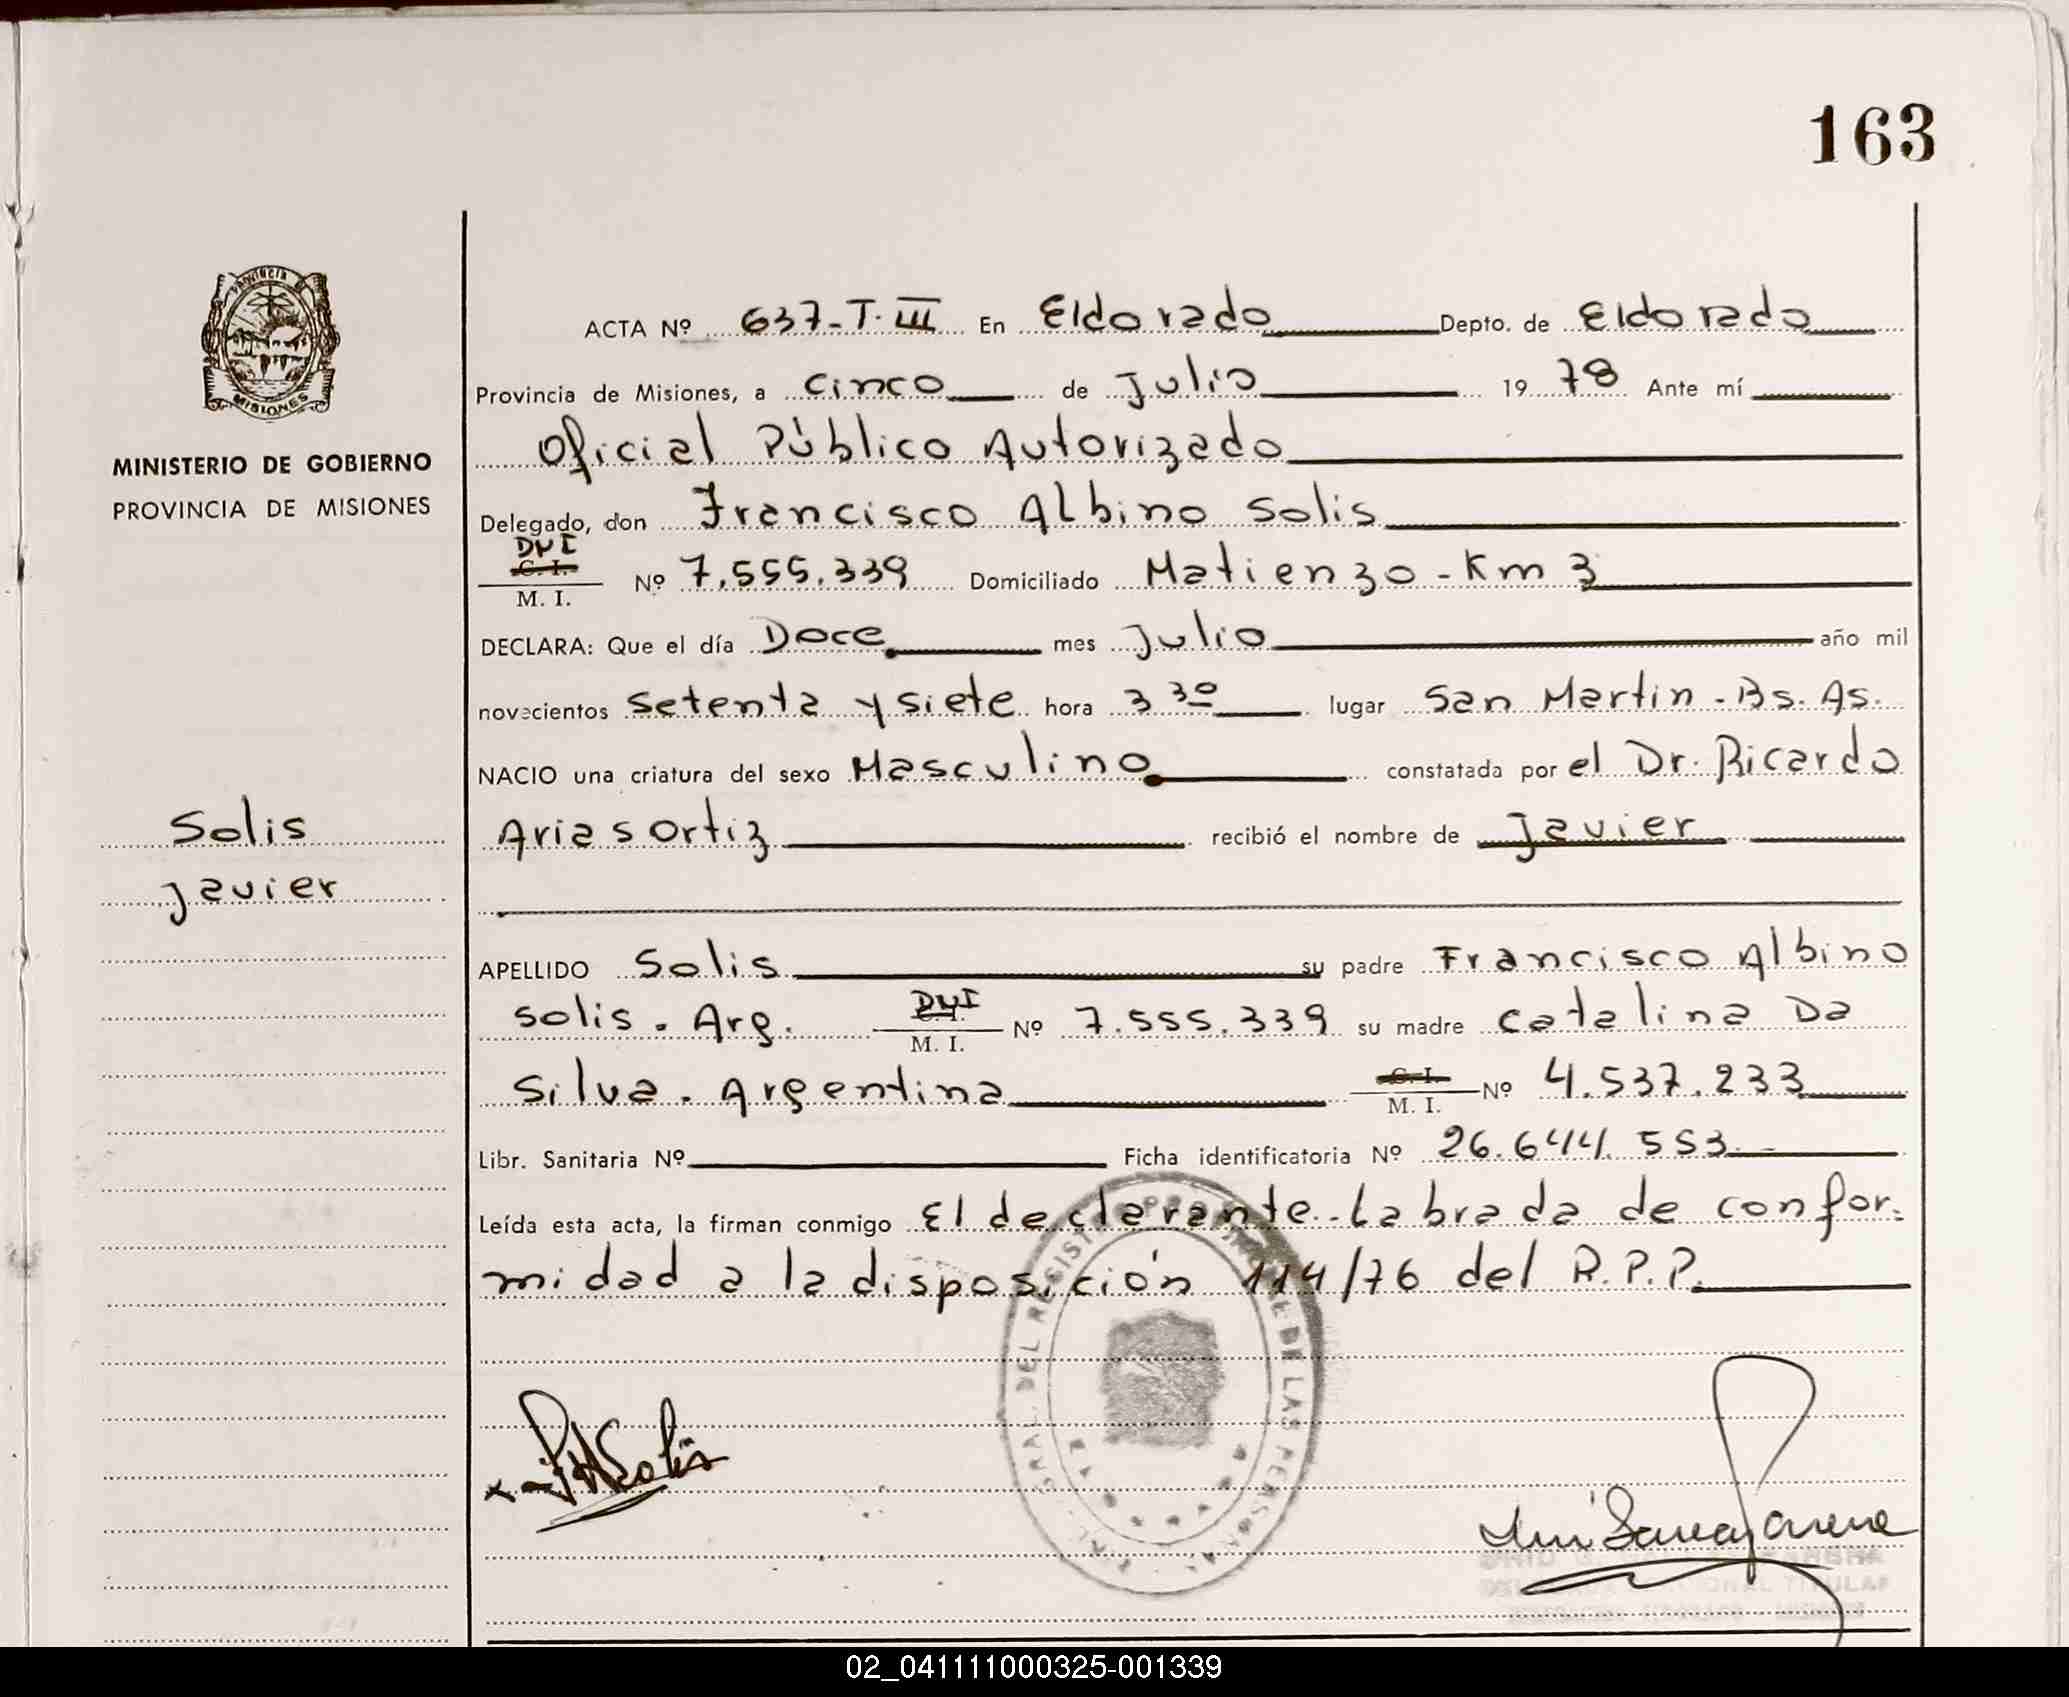 163
PROVINCIA
MISIONES
MINISTERIO DE GOBIERNO
PROVINCIA DE MISIONES
ACTA Nº 637-T.III En Eldorado Depto. de Eldorado
Provincia de Misiones, a cinco de Julio 1978 Ante mí
Oficial Público Autorizado
Delegado, don Francisco Albino Solis
DNI
C. I.
M. I. Nº 7.555.339 Domiciliado Matienzo - Km 3
DECLARA: Que el día Doce mes Julio año mil
novecientos setenta y siete hora 3 30 lugar San Martin - Bs. As.
NACIO una criatura del sexo Masculino constatada por el Dr. Ricardo
Arias Ortiz recibió el nombre de Javier
Solis
Javier
APELLIDO Solis su padre Francisco Albino
Solis. Arg. DNI M. I. Nº 7.555.339 su madre Catalina Da
Silva. Argentina C. I. M. I. Nº 4.537.233
Libr. Sanitaria Nº Ficha identificatoria Nº 26.644.553.-
Leída esta acta, la firman conmigo El declarante. Labrada de confor-
midad a la disposición 114/76 del R.P.P.
DEL REGISTRO PROVINCIAL DE LAS PERSONAS
Solis
02_041111000325-001339